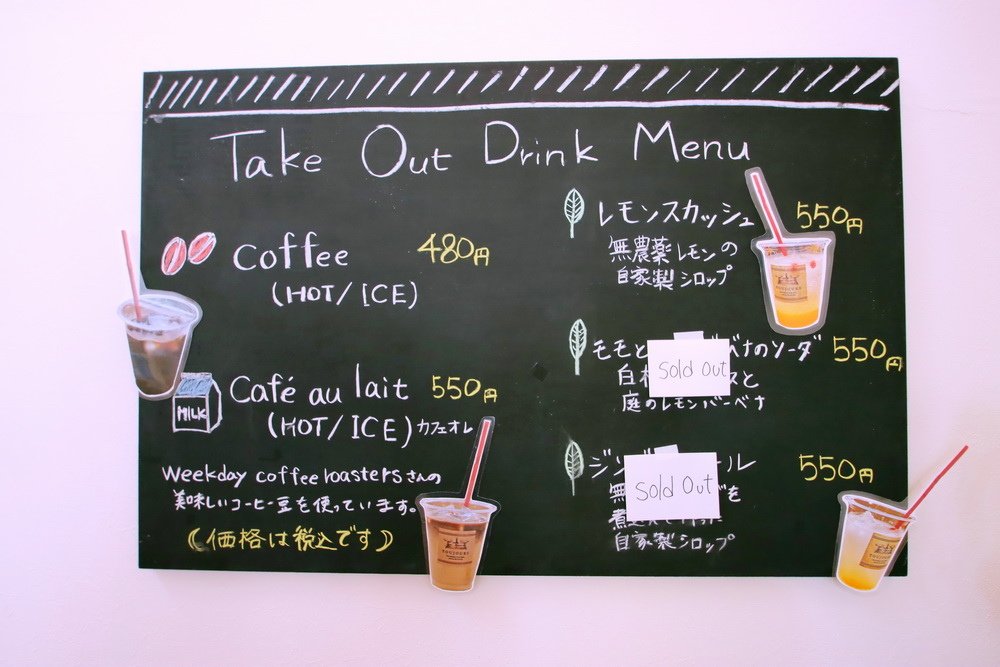 Take Out Drink Menu
coffee 480円
(HOT/ICE)
MILK
Café au lait 550円
(HOT/ICE)カフェオレ
Weekday coffee roastersさんの
美味しいコーヒー豆を使っています。
(価格は税込です)
レモンスカッシュ 550円
無農薬レモンの
自家製シロップ
モモと ベナのソーダ 550円
Sold Out
白 スと
庭のレモンバーベナ
ジン ール 550円
Sold Out
無 を
自家製シロップ
TOUJOURS
TOUJOURS